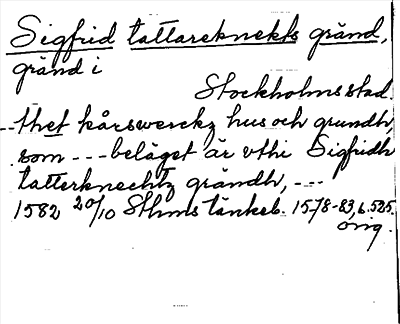 Sigfrid tattareknekts gränd,
gränd i
Stockholms stad.
--thet kårswerckz hus och grundh,
som --- beläget är vthi Sigfridh
tatterknechtz grändh, ---
1582 20/10 Sthms tänkeb. 1578-83, s. 525.
orig.